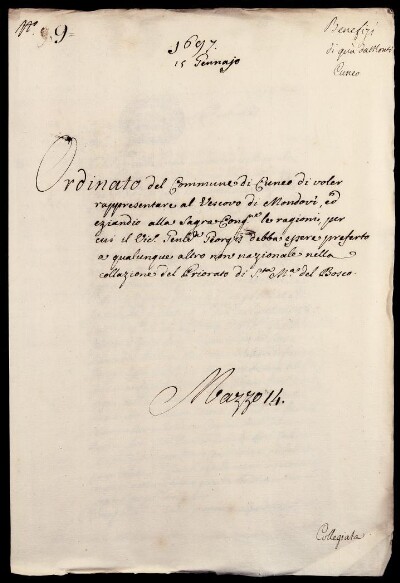 N.º 9.9=
Benefizj
di quà da Monti
Cuneo
1697.
15 Gennajo
Ordinato del Commune di Cuneo di voler
rappresentare al Vescovo di Mondovì, ed
eziandio alla Sagra Cong.ne le ragioni, per
cui il debba essere preferto
a qualunque altro non nazionale nella
collazione del Priorato di S.ta M.a del Bosco.
Mazzo 14.
Collegiata